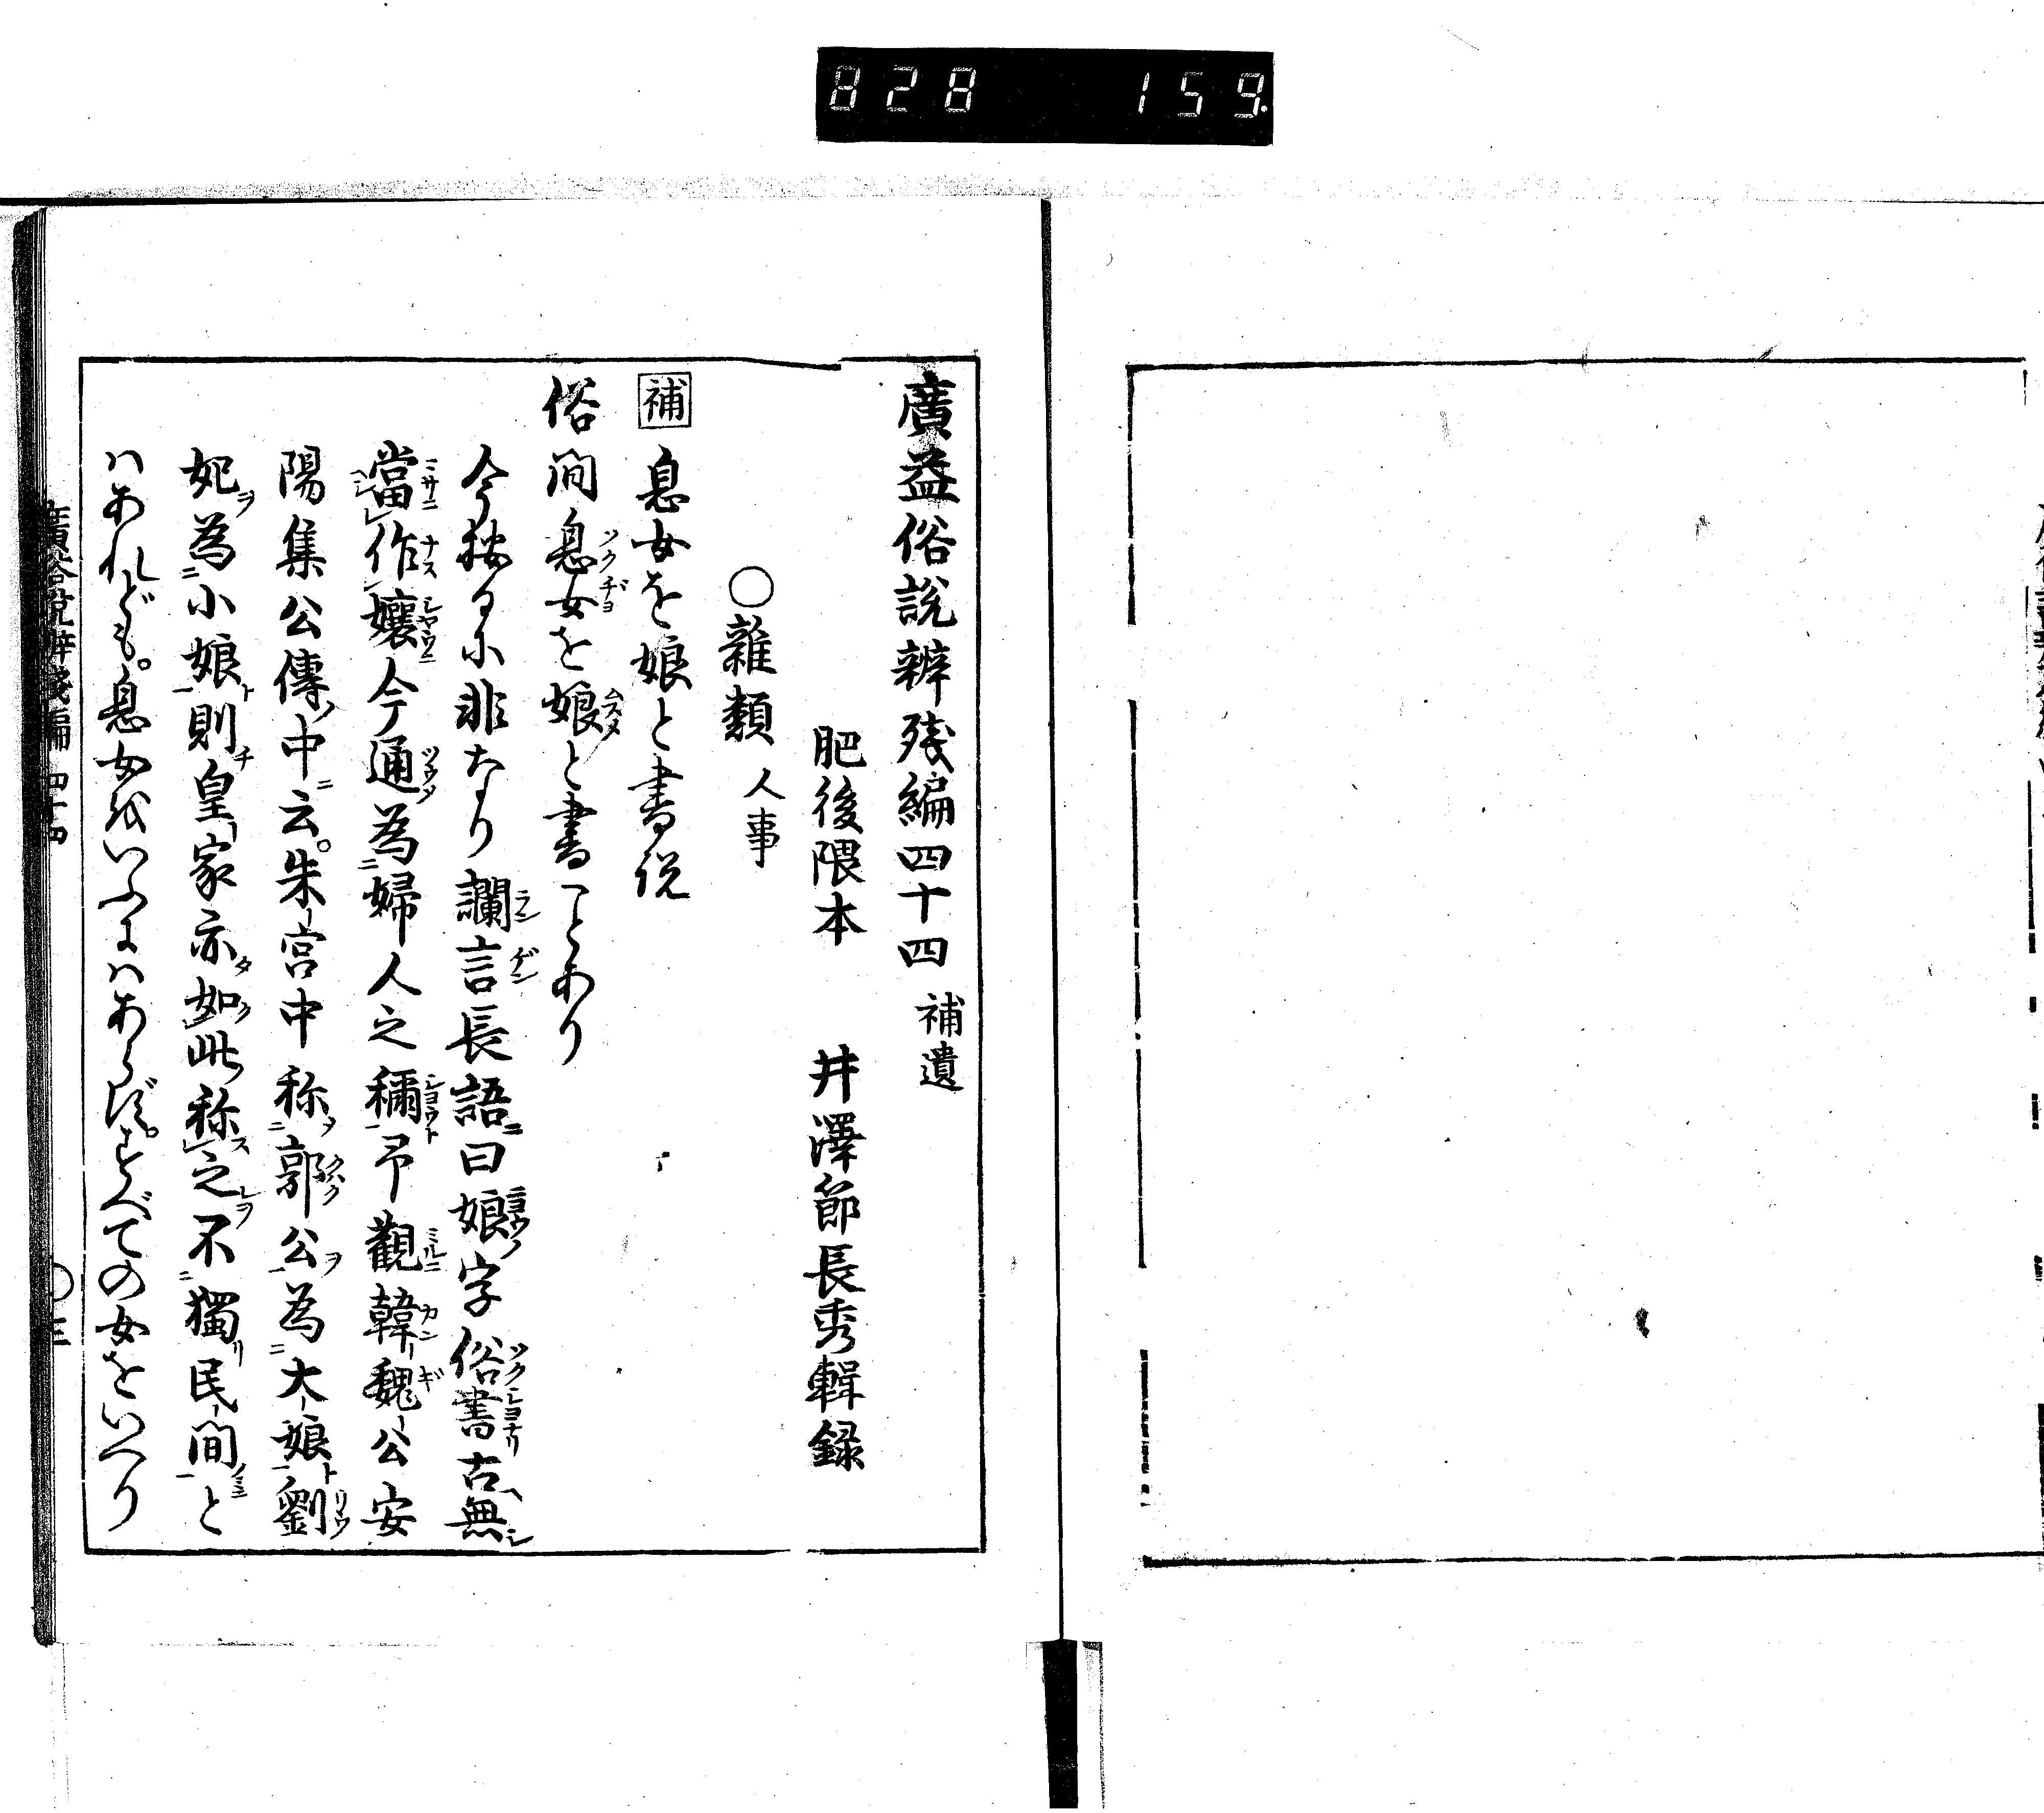 828 159.
廣益俗說辨残編四十四 補遺
肥後隈本 井澤節長秀輯録
○雜類 人事
補 息女を娘と書説
俗間息女を娘と書ことあり
今按るに非なり讕言長語曰娘字俗書古無
當作孃今通為婦人之稱予觀韓魏公安
陽集公傳中云朱宮中称郭公為大娘劉
妃為小娘則皇家亦如此称之不獨民間と
ハあれども息女をいふにハあらずすべての女をいへり
廣俗説辨残編 四十四 ○三